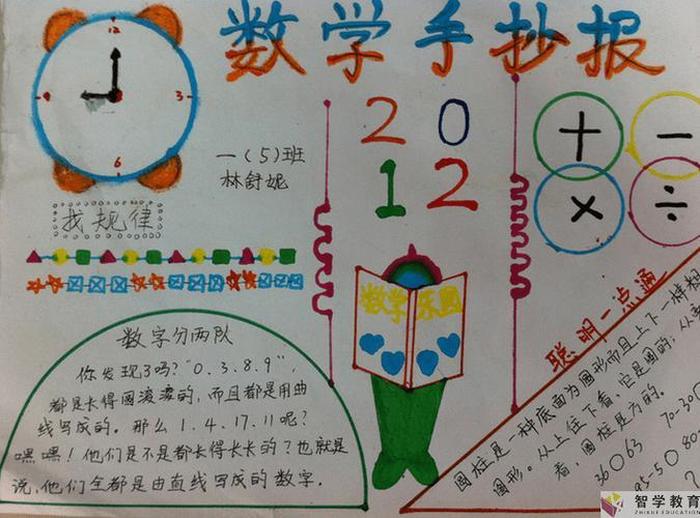 数学手抄报
12
9
3
6
一（5）班
林舒妮
找规律
2 0
1 2
+
−
×
÷
数学乐园
数字分两队
你发现了吗？"0.3.8.9"，
都是长得圆滚滚的，而且都是用曲
线写成的。那么1.4.17.11呢？
嘿嘿！他们是不是都长得长长的？也就是
说，他们全都是由直线写成的数字.
聪明一点通
圆柱是一种底面为圆形而且上下一样粗
图形。从上往下看，它是圆的；从
看，圆柱是方的。
36○63
70-20
95-5○80
智学教育
ZHIXUE EDUCATION